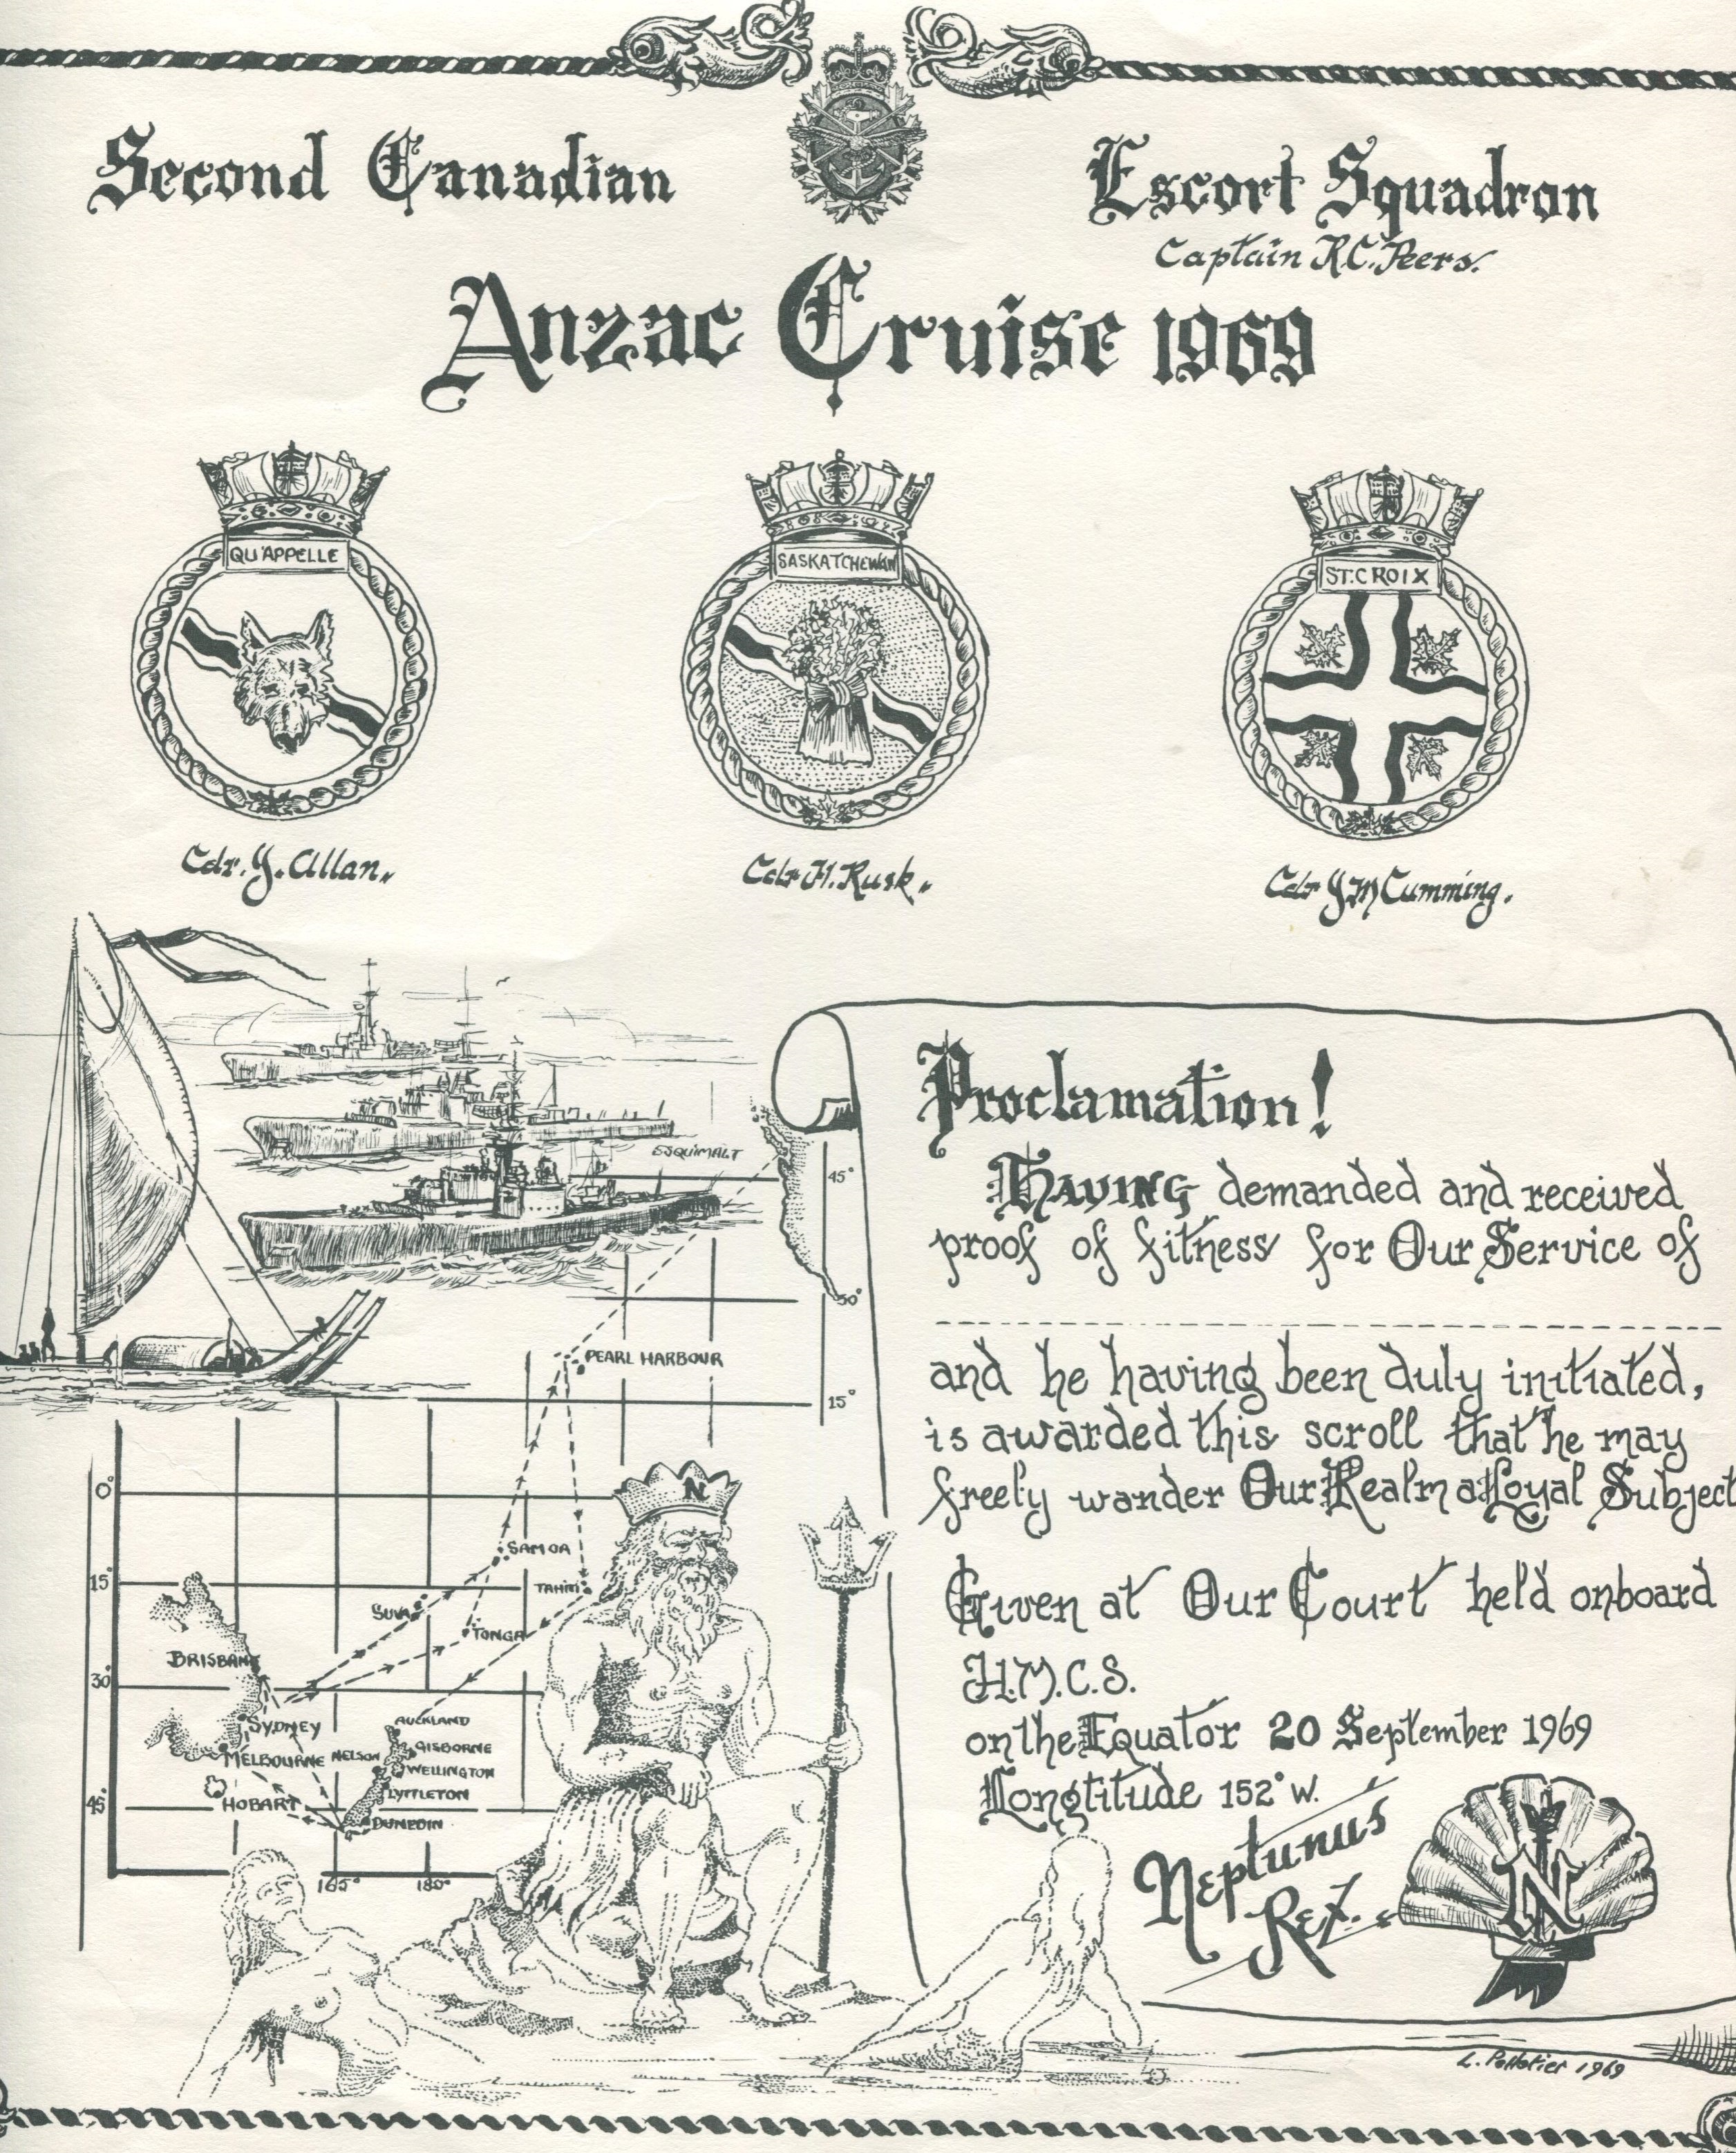 Second Canadian Escort Squadron
Captain R.C. Peers.
Anzac Cruise 1969
QU'APPELLE
SASKATCHEWAN
ST. CROIX
Cdr. J. Allan.
Cdr H. Rusk.
Cdr J M Cumming.
ESQUIMALT
45°
30°
PEARL HARBOUR
15°
0°
SAMOA
15°
TAHITI
SUVA
TONGA
BRISBANE
30°
SYDNEY
AUCKLAND
GISBORNE
MELBOURNE
NELSON
WELLINGTON
LYTTLETON
45°
HOBART
DUNEDIN
165°
180°
N
Proclamation!
Having demanded and received
proof of fitness for Our Service of
and he having been duly initiated,
is awarded this scroll that he may
freely wander Our Realm a Loyal Subject
Given at Our Court held onboard
H.M.C.S.
on the Equator 20 September 1969
Longtitude 152° W.
Neptunus
Rex.
N
L. Pelletier 1969